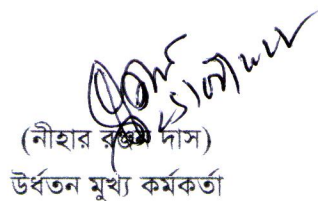 (নীহার রঞ্জন দাস)
উর্ধতন মুখ্য কর্মকর্তা